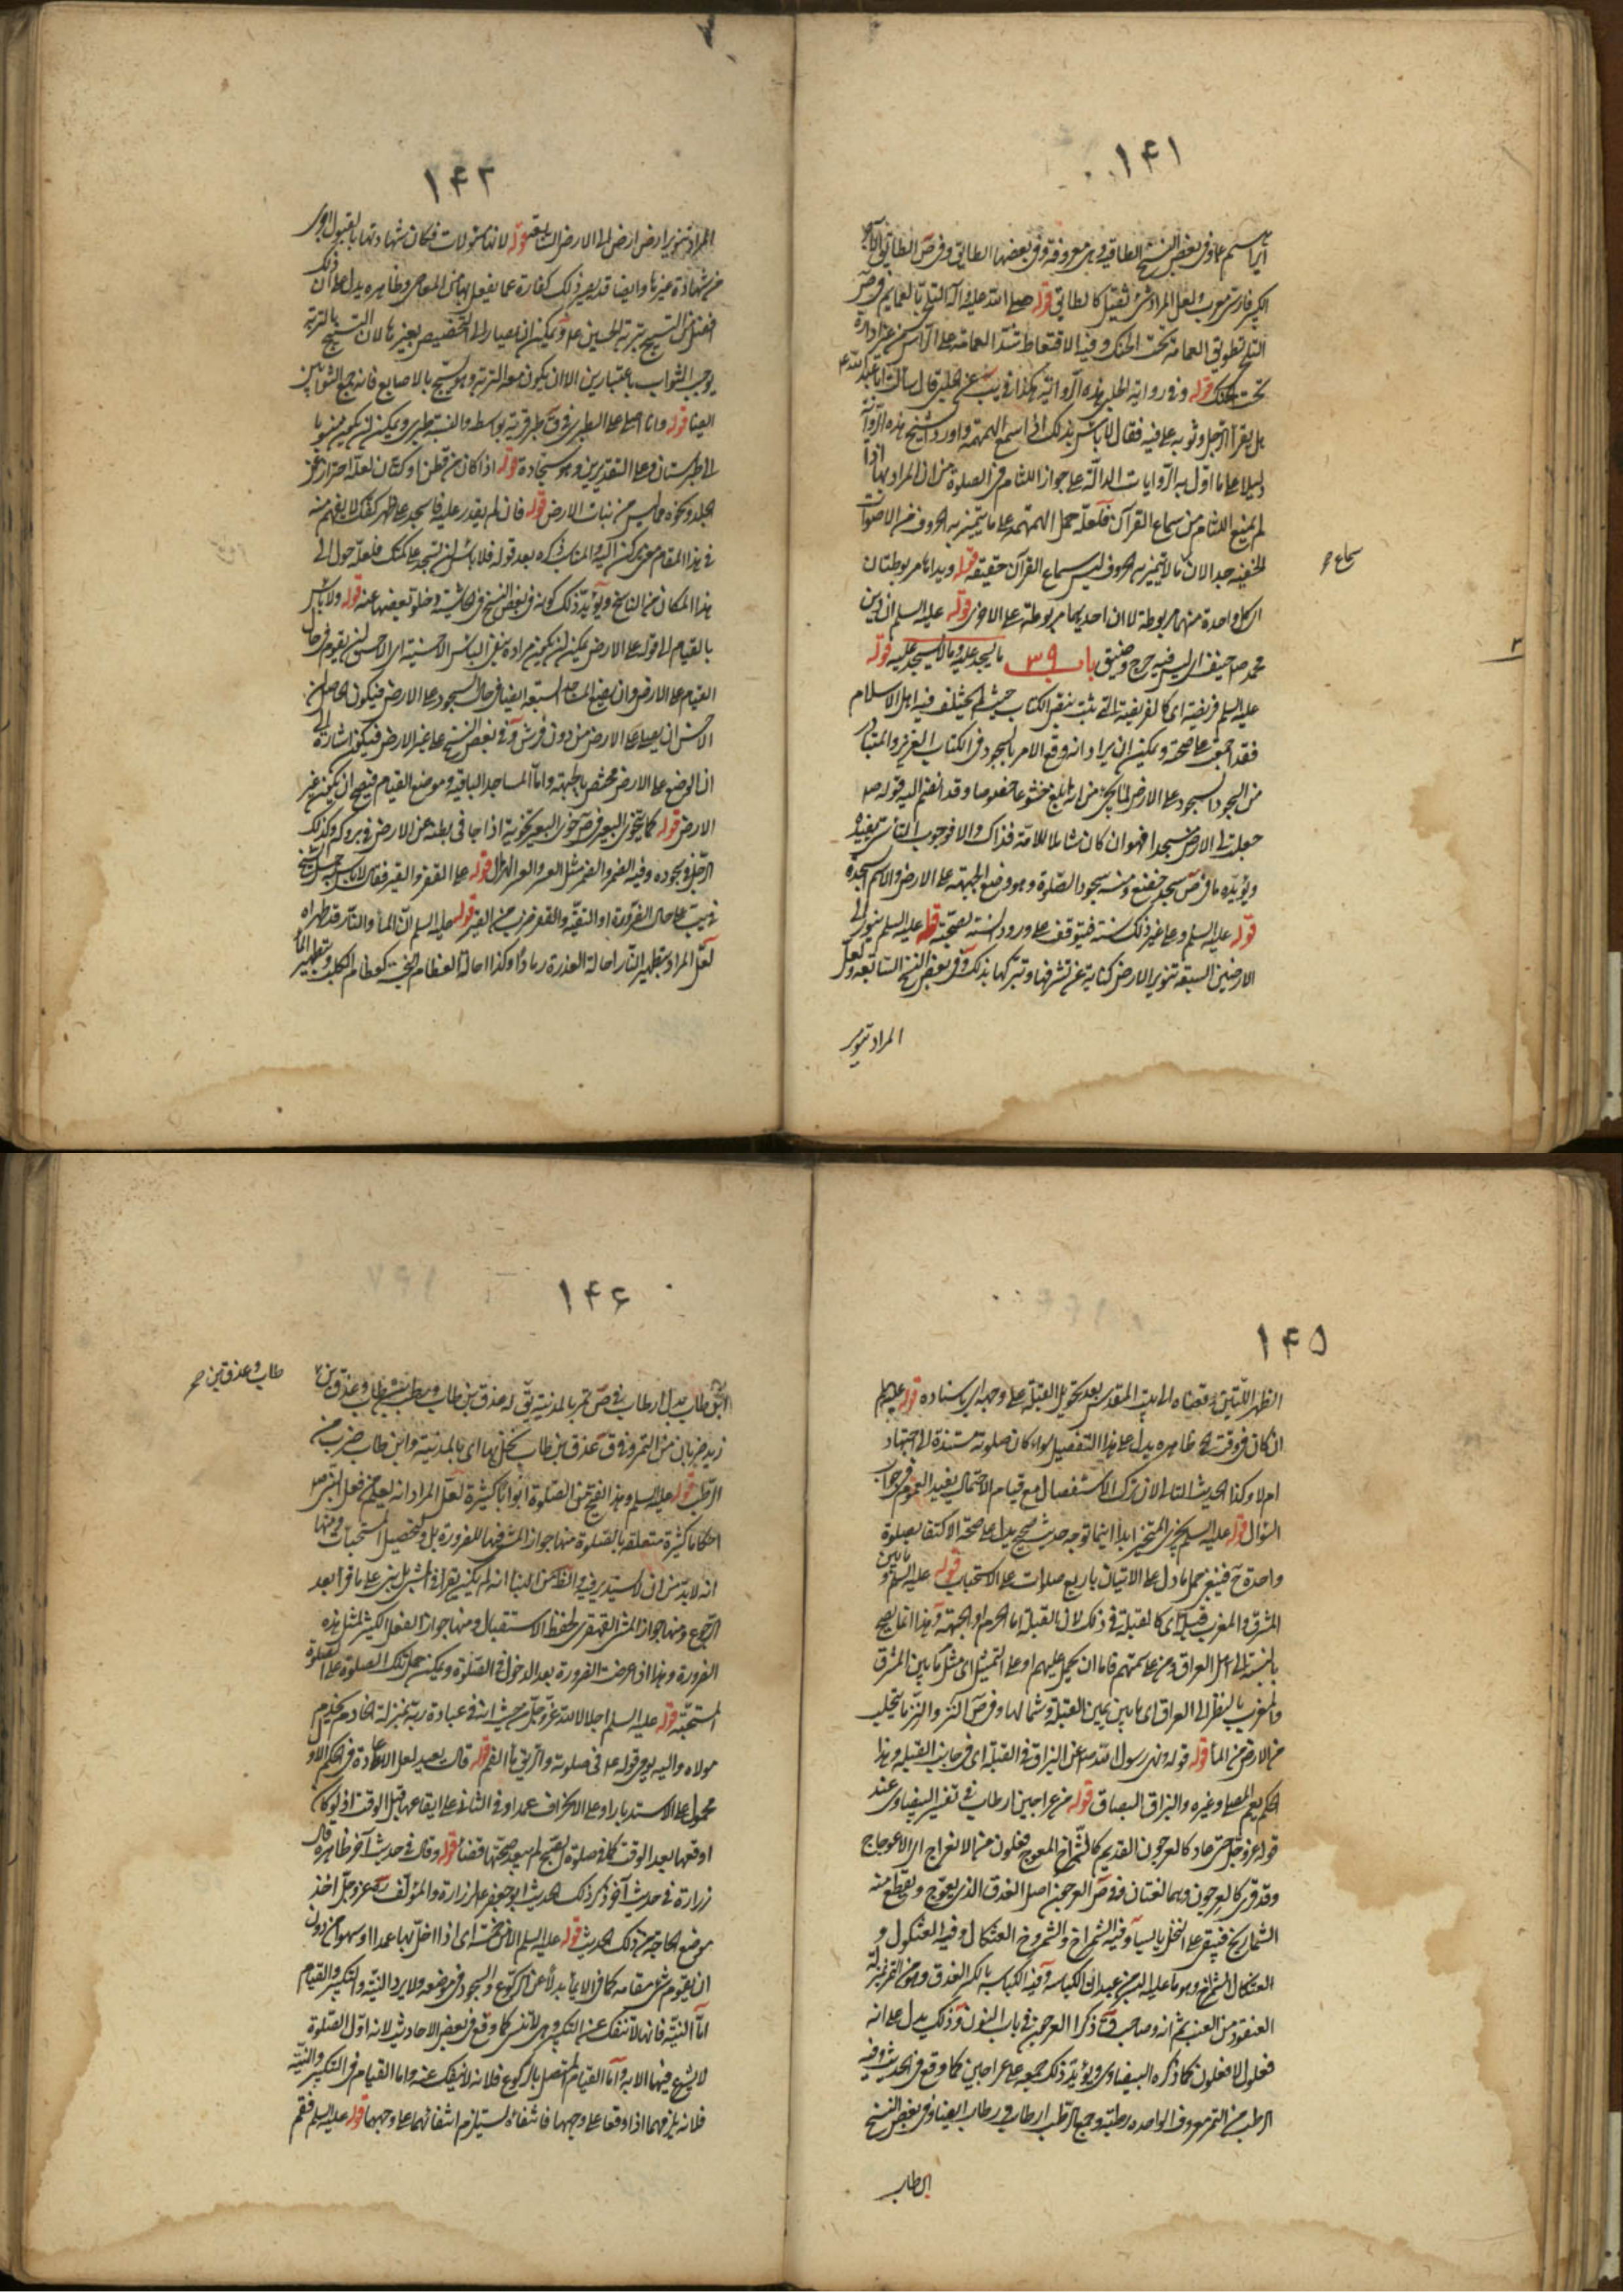 ١۴١
ابراسيم عا وفى بعض النسخ الطاقية وهى معروفة وفى بعضها الطابق وفى ص الطابق الآجر
الكبير فارسى معرب لعل المراد شئ ثقيل كالطابق قوله صلى الله عليه وآله التلحى بالعمايم فى ص
التلحى تطويق العمامة تحت الحنك وفيه الاقتعاط شد العمامة على الرأس من غير ادارة
تحت الحنك قوله وفى رواية الحلبى هذه الرواية هكذا فى يب عن الحلبى قال سألت ابا عبد الله ع
هل يقرأ الرجل وثوبه على فيه فقال لا بأس بذلك اذا اسمع الهمهمة واورد الشيخ هذه الرواية
دليلا على ما اوّل به الروايات الدالة على جواز اللثام فى الصلوة من ان المراد بها اذا
لم يمنع اللثام من سماع القرآن فلعله حمل الهمهمة على ما يتميز به الحروف من الاصوات
الخفية جدا لان ما لا يتميز به الحروف ليس سماع القرآن حقيقة قوله ويداه مربوطتان
اى كل واحدة منهما مربوطة لا ان احديهما مربوطة على الاخرى قوله عليه السلم ان دين
محمد صلى حنيف اى ليس فيه حرج وضيق باب ٣٩ ما يسجد عليه وما لا يسجد عليه قوله
عليه السلم فريضة اى كالفريضة التى تثبت بنص الكتاب حيث لم يختلف فيه اهل الاسلام
فقد اجمعوا على صحته ويمكن ان يراد انه وقع الامر بالسجود فى الكتاب العزيز والمتبادر
من السجود السجود على الارض لما يجئ من انه ابلغ خشوعا خصوصا وقد انضم اليه قوله صلى
جعلت لى الارض مسجدا فهو ان كان شاملا للامة فذاك والا فوجوب التأسى يفيده
ويؤيده ما فى ص سجد خضع ومنه سجود الصلوة وهو وضع الجبهة على الارض والاسم السجدة
قوله عليه السلم وعلى غير ذلك سنة فيتوقف على ورود السنة بصحته قوله عليه السلم ينور الى
الارضين السبعة تنوير الارض كناية عن تشرفها وتبركها بذلك وفى بعض النسخ السابعة ولعل
المراد تنوير
سماع ح
٣
١۴٢
المراد تنوير ارض ارض الى الارض السابعة قوله لانها مسئولات فكان شهادتها بالقبول اولى
من شهادة غيرها وايضا قد يصير ذلك كفارة عما يفعل بها من المعاصى وظاهره يدل على ان ذلك
افضل من التسبيح بتربة الحسين ع ويمكن ان يصار الى التخصيص بغيرها لان التسبيح بالتربة
يوجب الثواب باعتبارين الا ان يكون معه التربة وهو يسبح بالاصابع فانه جمع الثوابين
ايضا قوله وانا اصلى على الطبرى فى ق طبر قرية بواسط والنسبة طبرى ويمكن ان يكون منسوبا
الى طبرستان وعلى التقديرين هو سجادة قوله اذا كان من قطن او كتان لعله احتراز عن
الجلد ونحوه مما ليس من نبات الارض قوله فان لم يقدر عليه فاسجد على ظهر كفك لا يفهم منه
فى هذا المقام معنى يركن اليه والمناسب ذكره بعد قوله فلا بأس ان تسجد على كمك فلعله حول الى
هذا المكان من الناسخ ويؤيد ذلك كونه فى بعض النسخ فى الحاشية وخلو بعضها عنه قوله ولا بأس
بالقيام الى قوله على الارض يمكن ان يكون مراده بنفى البأس الاحسنية اى الاحسن ان يقوم فى حال
القيام على الارض وان يضع المساجد السبعة ايضا فى حال السجود على الارض فيكون الحاصل ان
الاحسن ان يصلى على الارض من دون فرش وفى بعض النسخ على غير الارض فيكون اشارة الى
ان الوضع على الارض مختص بالجبهة واما المساجد الباقية وموضع القيام فيصح ان يكون غير
الارض قوله كما يتخوى البعير فى ص خوى البعير تخوية اذا جافى بطنه عن الارض فى بروكه وكذلك
الرجل فى سجوده وفيه الضمر والضمر مثل العسر والعسر الهزال قوله على القفر والقير فقال لا بأس حمل الشيخ
فى يب على حال الضرورة او التقية والقفر ضرب من القير قوله عليه السلم ان الماء والنار قد طهراه
لعل المراد بتطهير النار احالة العذرة رمادا وكذا احالة العظام النجسة كعظام الكلب وبتطهير الماء
١۴۵
الظهر اللتين وقضاه الى بيت المقدس بعد تحويل القبلة على وجه اى باسناده قوله عليه السلم
ان كان فى وقت فلا ظاهره يدل على هذا التفصيل سواء كان صلوته مستندة الى اجتهاد
ام لا وكذا الحديث التالى لان ترك الاستفصال مع قيام الاحتمال يفيد العموم فى جواب
السؤال قوله عليه السلم يجزى المتحير ابدا اينما توجه حديث صحيح يدل على صحة الاكتفاء بصلوة
واحدة ح فينبغى حمل ما دل على الاتيان باربع صلوات على الاستحباب قوله عليه السلم ما بين
المشرق والمغرب قبلة اى كالقبلة فى ذلك لان القبلة اما الحرم او الجهة وهذا انما يصح
بالنسبة الى اهل العراق ومن على سمتهم فاما ان يحمل عليهم او على التمثيل اى مثل ما بين المشرق
والمغرب بالنظر الى العراق اى ما بين يمين القبلة وشمالها وفى ص النز والنز ما يتحلب
من الارض من الماء قوله قوله ونهى رسول الله صلى عن البزاق فى القبلة اى فى جانب القبلة وهذا
الحكم يعم المصلى وغيره والبزاق البصاق قوله من عراجين ارطاب فى تفسير البيضاوى عند
قوله عز وجل حتى عاد كالعرجون القديم كالشمراخ المعوج فعلون من الانعراج اى الاعوجاج
وقد قرئ كالعرجون وهما لغتان وفى ص العرجون اصل العذق الذى يعوج ويقطع منه
الشماريخ فيبقى على النخل يابسا وفيه الشمراخ والشمروخ العثكال وفيه العثكول و
العثكال الشمراخ وهو ما عليه البسر من عيدان الكباسة وفيه الكباسة بالكسر العذق وهو من التمر بمنزلة
العنقود من العنب ثم انه وصاحب ق ذكرا العرجون فى باب النون وذلك يدل على انه
فعلول لا فعلون كما ذكره البيضاوى ويؤيد ذلك جمعه على عراجين كما وقع فى الحديث وفيه
الرطب من التمر معروف الواحدة رطبة وجمع الرطب ارطاب ورطاب ايضا وفى بعض النسخ
ابن طاب
١۴۶
ابن طاب بدل ارطاب فى ص تمر بالمدينة يق له عذق بن طاب ورطب بن طاب وعذق بن
زيد ضربان من التمر وفى ق عذق بن طاب نخل بها اى بالمدينة وابن طاب ضرب من
الرطب قوله عليه السلم وهذا يفتح من الصلوة ابوابا كثيرة لعل المراد انه يعلم من فعل النبى صلى
احكاما كثيرة متعلقة بالصلوة منها جواز المشى فيها للضرورة بل ولتحصيل المستحبات ومنها
انه لا بد من ان لا يستدبر فيه والظاهر ايضا انه لم يكن يقرأ فى المشى بل بنى على ما قرأ بعد
الرجوع ومنها جواز المشى القهقرى لحفظ الاستقبال ومنها جواز الفعل الكثير لمثل هذه
الضرورة وهذا اذا عرضت الضرورة بعد الدخول فى الصلوة ويمكن حمل تلك الصلوة على الصلوة
المستحبة قوله عليه السلم اجلالا لله عز وجل من حيث انه فى عبادة ربه بمنزلة الخادم يخدم
مولاه واليه يومى قوله ع فى صلوته والريق ماء الفم قوله قال يعيد لعل الاعادة فى الحكم الاول
محمول على الاستدبار او على الانحراف عمدا وفى الثانى على ايقاعها قبل الوقت اذ لو كان
اوقعها بعد الوقت كما فى صلوة الصبح لم يعد صبحها قضاء قوله وقال فى حديث آخر ظاهره قال
زرارة فى حديث آخر ذكر ذلك الحديث ابو جعفر ع لزرارة والمؤلف ره عز وجل اخذ
موضع الحاجة من ذلك الحديث قوله عليه السلم الا من خمسة اى اذا اخل بها عمدا او سهوا من دون
ان يقوم شئ مقامه كما فى الايماء بدلا عن الركوع والسجود فى موضعه ولا يرد النية والتكبير والقيام
اما النية فانها لا تنفك عنه التكبير وهى لا تنسى كما وقع فى بعض الاحاديث لانه اول الصلوة
لا يشرع فيها الا به واما القيام المتصل بالركوع فلانه لا ينفك عنه واما القيام فى التكبير والنية
فلانه يلزمهما اذا وقعا على وجهها فانتفاؤه يستلزم انتفائهما على وجههما قوله عليه السلم فقم
طاب وعذق بن ح